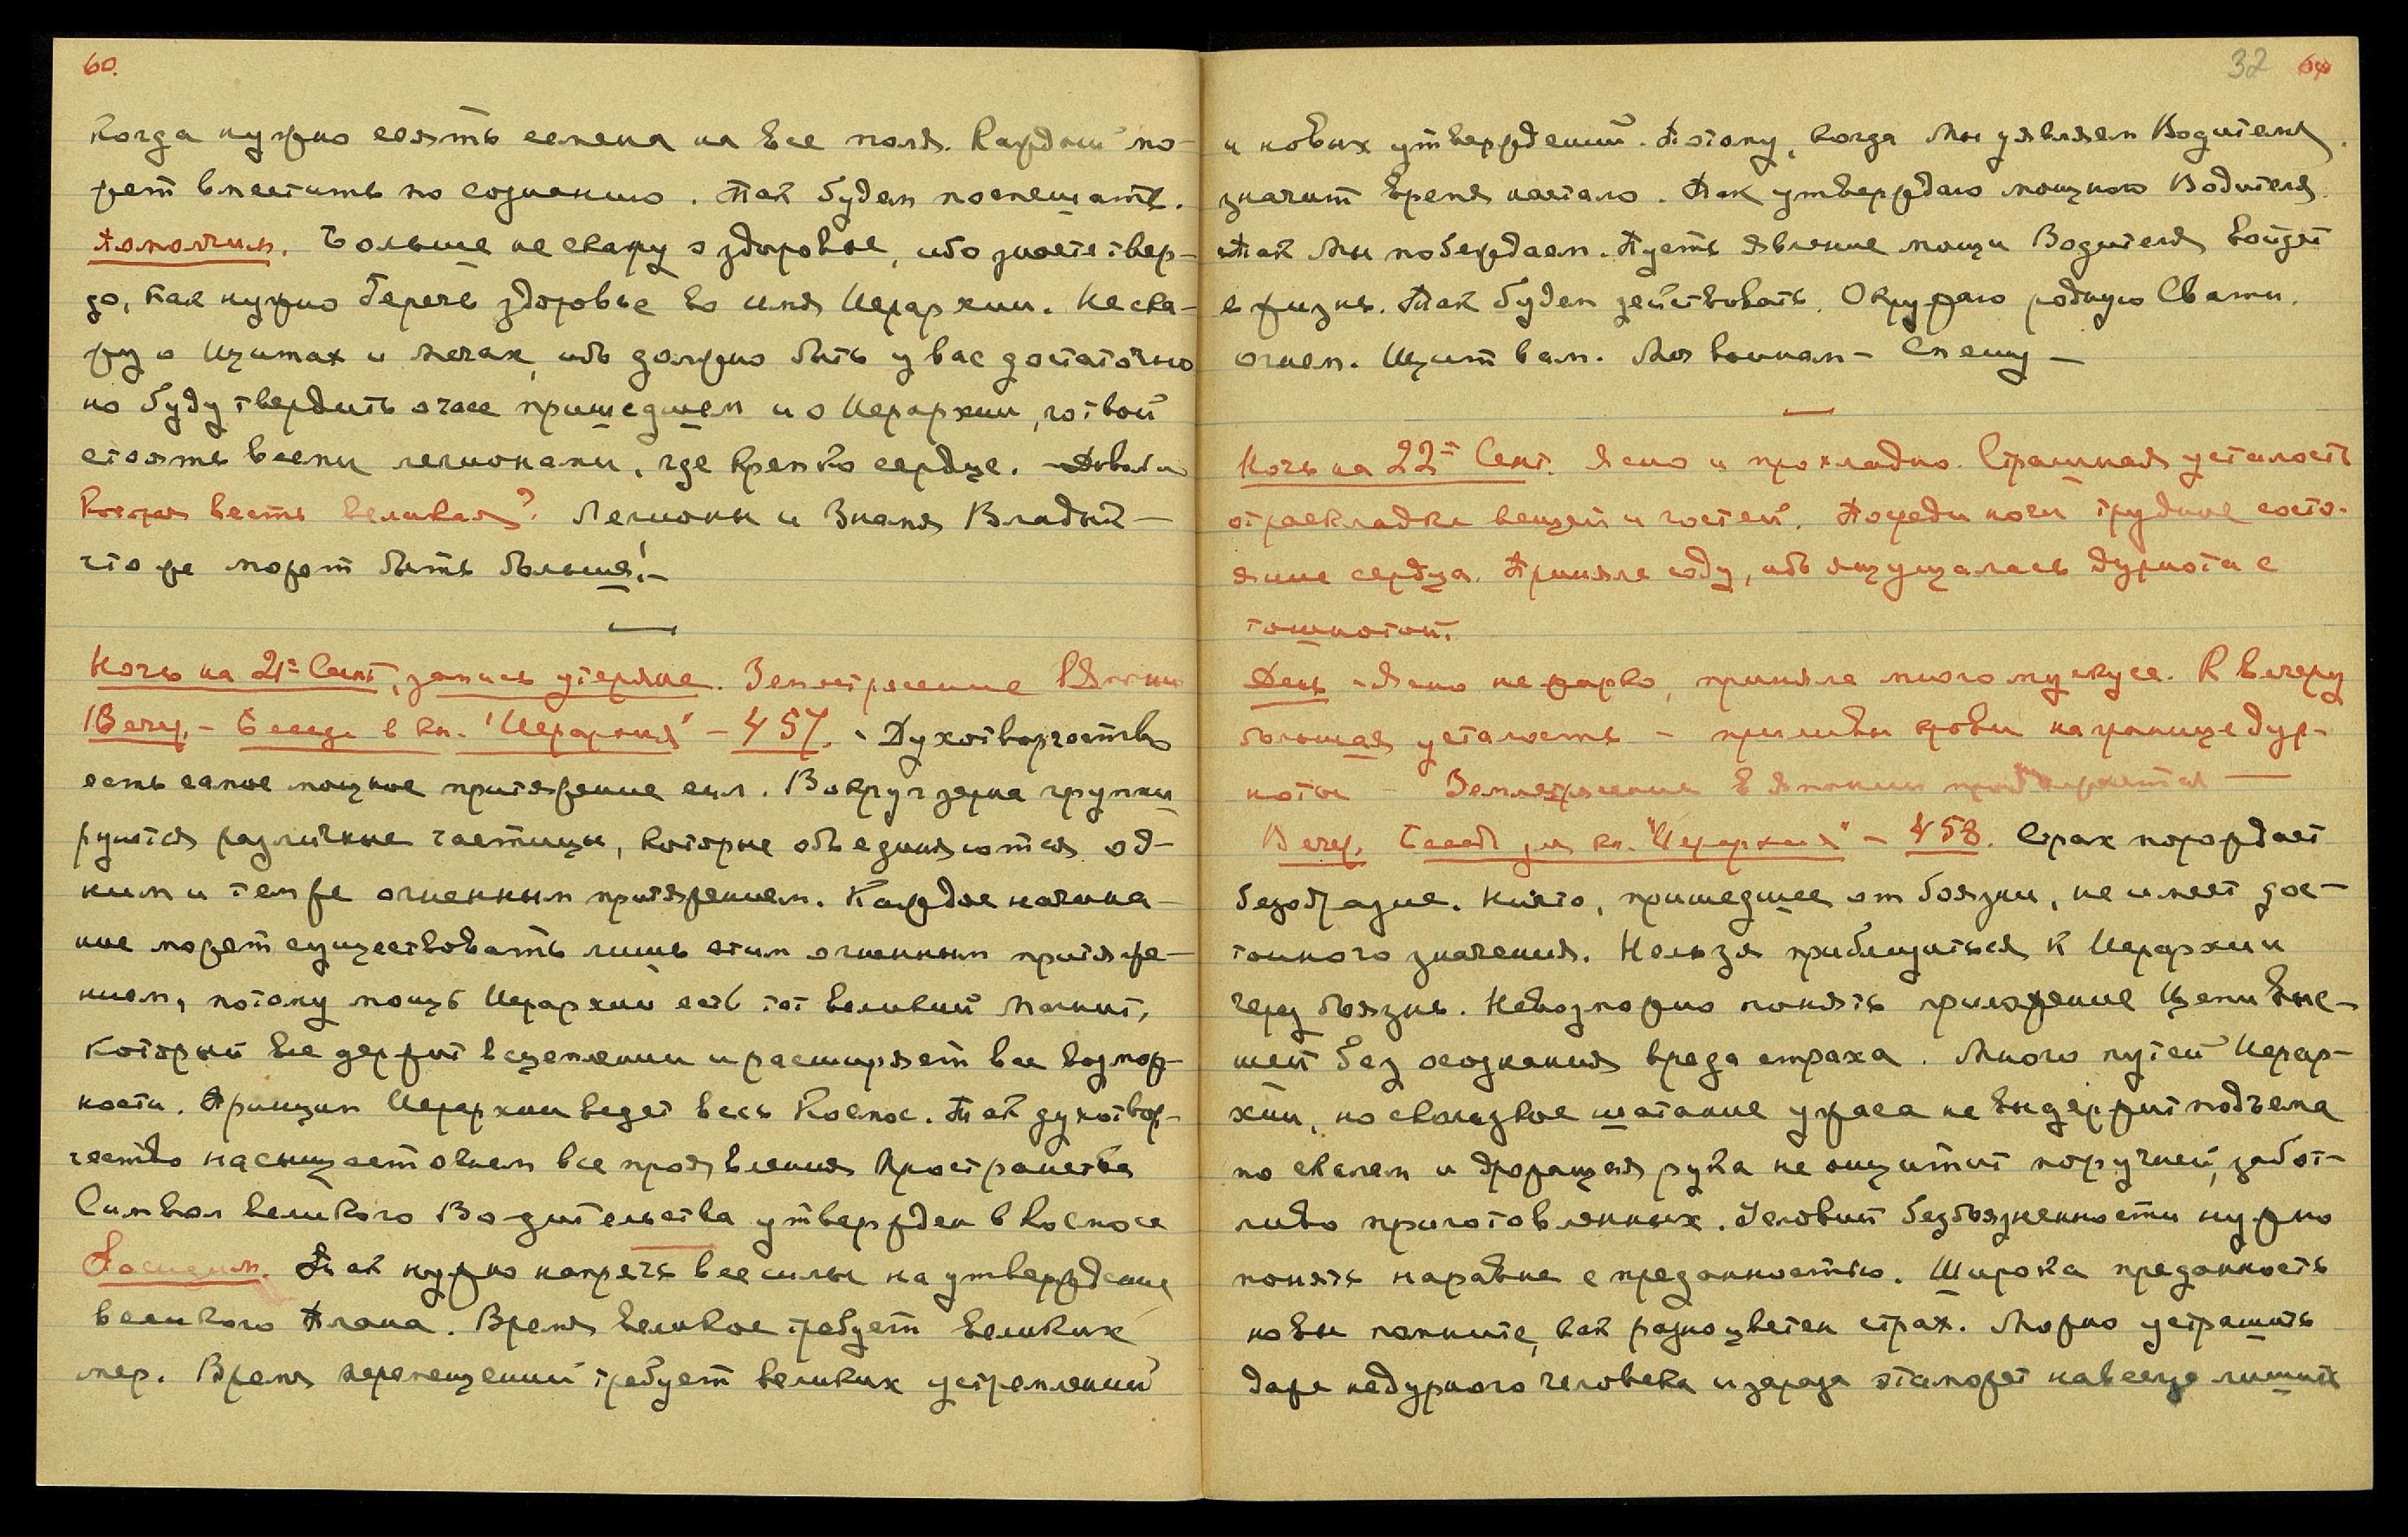 60.
когда нужно сеять семена на все поля. Каждый мо-
жет вместить по сознанию. Так будем поспешать.
Помолчим. Больше не скажу о здоровье, ибо знаете твер-
до, как нужно беречь здоровье во имя Иерархии. Не ска-
жу о щитах и мечах, ибо должно быть у вас достаточно
но буду твердить о часе пришедшем и о Иерархии, готовой
стоять всеми легионами, где крепко сердце. –
весть великая? Легионы и Знамя Владык –
что же может быть больше! –
Ночь на 21ое Сент., запись утеряна. Землетрясение в Японии
Вечер. – Беседа в кн. "Иерархия" – 457. – Духотворчество
есть самое мощное притяжение сил. Вокруг зерна группи
руются различные частицы, которые объединяются од-
ним и тем же огненным притяжением. Каждое начина-
ние может существовать лишь этим огненным притяже-
нием, потому мощь Иерархии есть тот великий Магнит,
который все держит в сцеплении и расширяет все возмож-
ности. Принцип Иерархии ведет весь Космос. Так духотвор-
чество насыщает огнем все проявления Пространства
Символ великого Водительства утвержден в Космосе
Так нужно напрячь все силы на утверждение
великого Плана. Время великое требует великих
мер. Время перемещений требует великих устремлений
32
и новых утверждений. Потому, когда Мы уявляем Водителя,
значит время настало. Так утверждаю мощного Водителя.
Так Мы побеждаем. Пусть явление мощи Водителя войдет
в жизнь. Так будем действовать. Окружаю родную Свати
огнем. Щит вам. Моя воинам – Спешу –
Ночь на 22ое Сент. Ясно и прохладно. Страшная усталость
от раскладки вещей и гостей. Посреди ночи трудное состо-
яние сердца. Приняла соду, ибо ощущалась дурнота с
тошнотой.
День – Ясно не жарко, приняла много мускуса. К вечеру
большая усталость – приливы крови на границе дур-
ноты – Землетрясение в Японии
Вечер. Беседа для кн. "Иерархия" – 458. Страх порождает
безобразие. Ничто, пришедшее от боязни, не имеет дос-
тойного значения. Нельзя приблизиться к Иерархии
через боязнь. Невозможно понять приложение Цепи Выс-
шей без осознания вреда страха. Много путей Иерар-
хии, но скользкое шатание ужаса не выдержит подъема
по скалам и дрожащая рука не ощутит поручней, забот-
ливо приготовленных. Условия безбоязненности нужно
понять наравне с преданностью. Широка преданность
но вы помните, как разноцветен страх. Можно устрашить
даже недурного человека и зараза эта может навсегда лишить